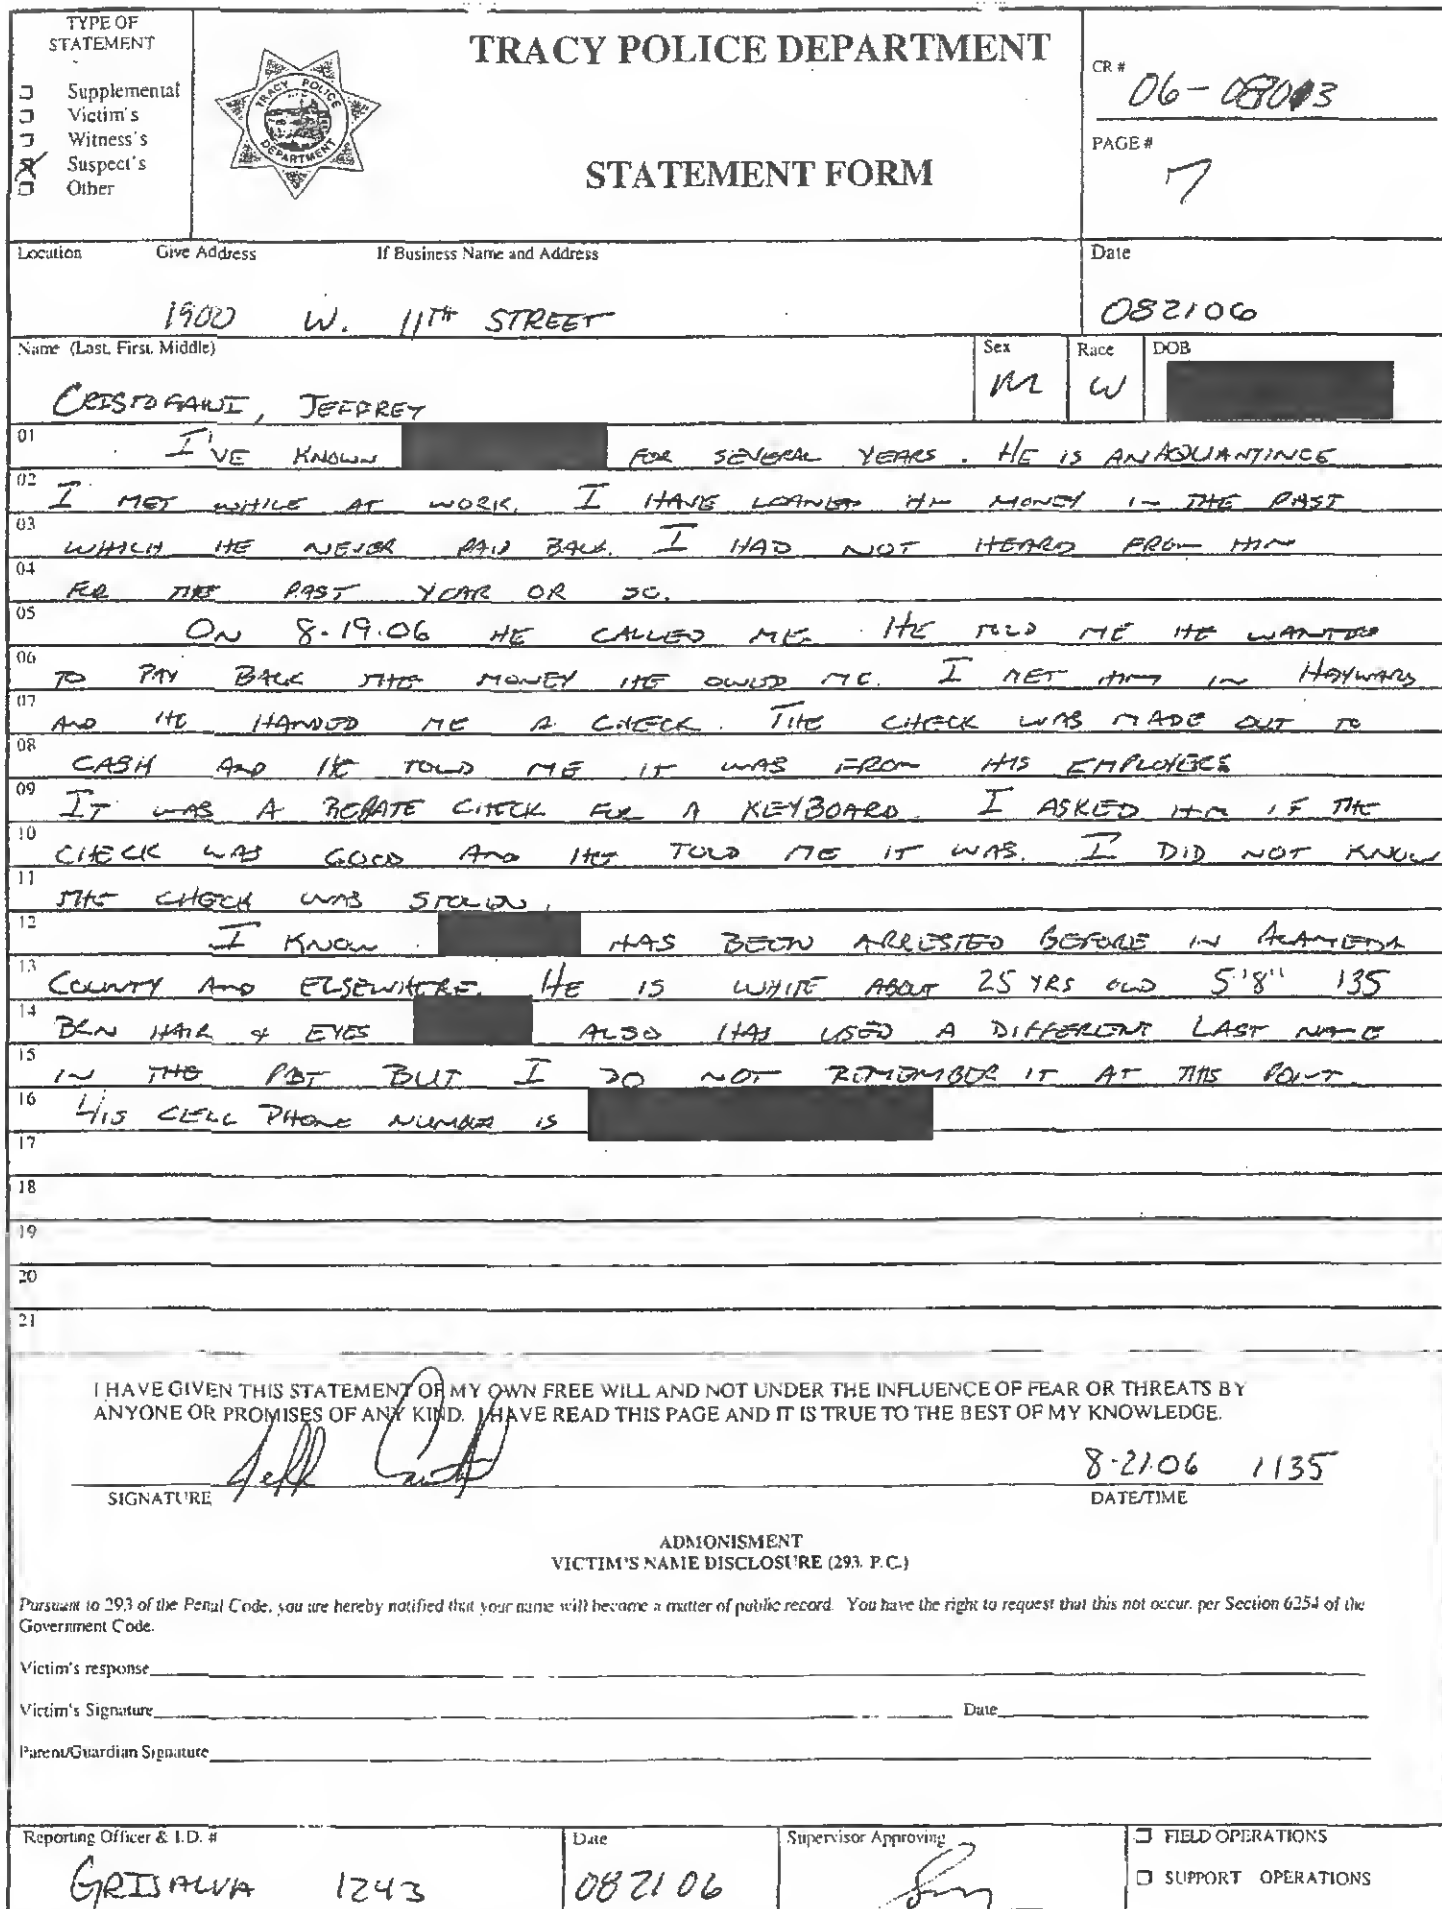 TYPE OF
STATEMENT
Supplemental
Victim's
Witness's
Suspect's
Other
TRACY POLICE
DEPARTMENT
TRACY POLICE DEPARTMENT
STATEMENT FORM
CR #
PAGE #
7
Location Give Address If Business Name and Address
1900 W. 11TH STREET
Date
082106
Name (Last, First, Middle)
CRISTOFANI, JEFFREY
Sex
M
Race
W
DOB
01 I'VE KNOWN FOR SEVERAL YEARS. HE IS AN AQUANTINCE
02 I MET WHILE AT WORK. I HAVE LOANED HIM MONEY IN THE PAST
03 WHICH HE NEVER PAID BACK. I HAD NOT HEARD FROM HIM
04 FOR THE PAST YEAR OR SO.
05 ON 8-19-06 HE CALLED ME. HE TOLD ME HE WANTED
06 TO PAY BACK THE MONEY HE OWED ME. I MET HIM IN HAYWARD
07 AND HE HANDED ME A CHECK. THE CHECK WAS MADE OUT TO
08 CASH AND HE TOLD ME IT WAS FROM HIS EMPLOYERS
09 IT WAS A REBATE CHECK FOR A KEYBOARD. I ASKED HIM IF THE
10 CHECK WAS GOOD AND HE TOLD ME IT WAS. I DID NOT KNOW
11 THE CHECK WAS STOLEN.
12 I KNOW HAS BEEN ARRESTED BEFORE IN ALAMEDA
13 COUNTY AND ELSEWHERE. HE IS WHITE ABOUT 25 YRS OLD 5'8" 135
14 BRN HAIR & EYES ALSO HAS USED A DIFFERENT LAST NAME
15 IN THE PAST BUT I DO NOT REMEMBER IT AT THIS POINT.
16 HIS CELL PHONE NUMBER IS
17
18
19
20
21
I HAVE GIVEN THIS STATEMENT OF MY OWN FREE WILL AND NOT UNDER THE INFLUENCE OF FEAR OR THREATS BY
ANYONE OR PROMISES OF ANY KIND. I HAVE READ THIS PAGE AND IT IS TRUE TO THE BEST OF MY KNOWLEDGE.
Jeff
8-21-06 1135
SIGNATURE
DATE/TIME
ADMONISMENT
VICTIM'S NAME DISCLOSURE (293. P.C.)
Pursuant to 293 of the Penal Code, you are hereby notified that your name will become a matter of public record. You have the right to request that this not occur, per Section 6254 of the
Government Code.
Victim's response
Victim's Signature Date
Parent/Guardian Signature
Reporting Officer & I.D. #
GRIJALVA 1243
Date
082106
Supervisor Approving
FIELD OPERATIONS
SUPPORT OPERATIONS